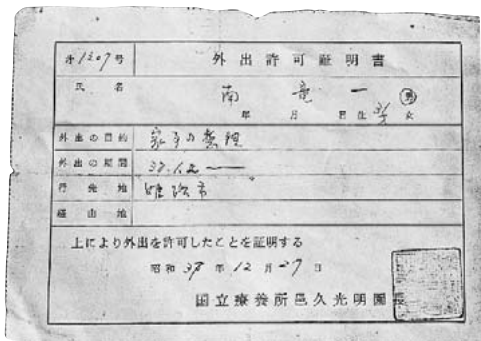 第1207号 外出許可証明書
氏名 南 一 男
年 月 日生 女
外出の目的 家事の整理
外出の期間
行先地 姫路市
経由地
上により外出を許可したことを証明する
昭和37年12月27日
国立療養所邑久光明園長